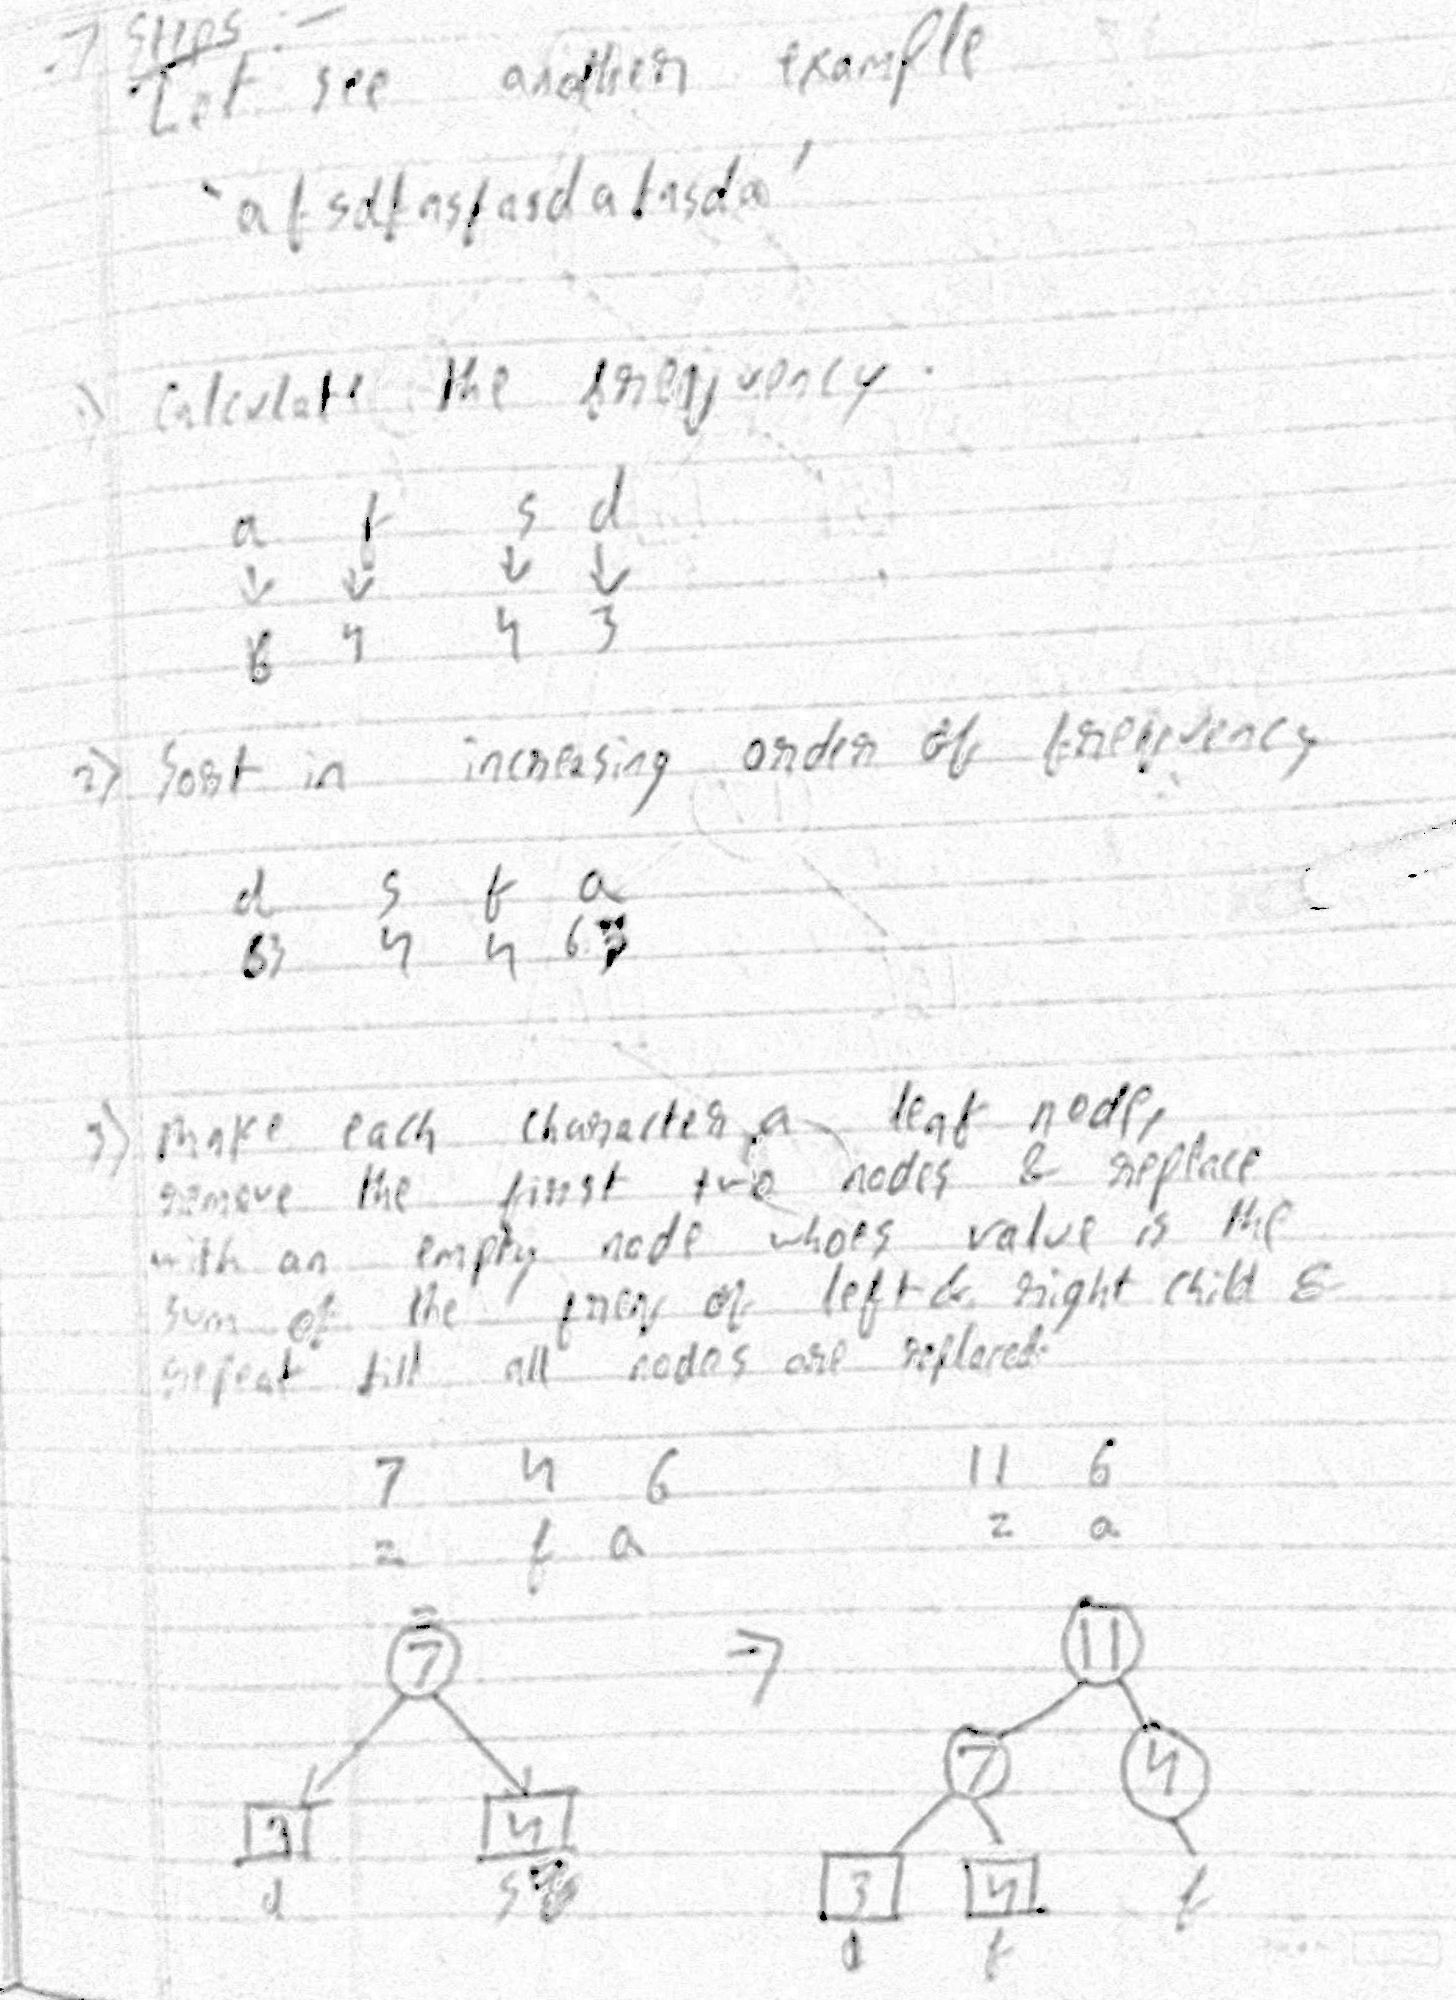 → Steps :-
Let see another example
'afsdfasfasdafasda'
1) Calculate the frequency.
a f s d
↓ ↓ ↓ ↓
6 4 4 3
2) Sort in increasing order of frequency
d s f a
3 4 4 6
3) Make each character a leaf node,
remove the first two nodes & replace
with an empty node whoes value is the
sum of the freq of left & right child &
repeat till all nodes are replaced
7 4 6 11 6
z f a z a
7 ⇒ 11
7 4
3 4
d s
3 4 f
d f